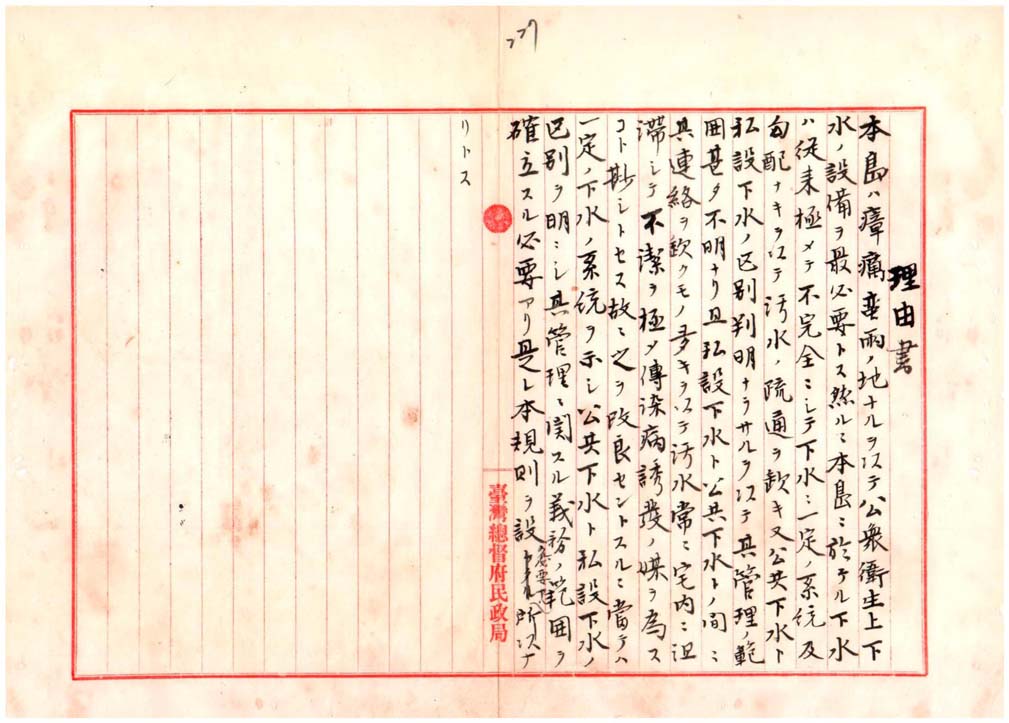 理由書
本島ハ瘴癘蛮雨ノ地ナルヲ以テ公衆衛生上下
水ノ設備ヲ最必要トス然ルニ本島ニ於ケル下水
ハ従来極メテ不完全ニシテ下水ニ一定ノ系統及
勾配ナキヲ以テ汚水ノ疏通ヲ欠キ又公共下水ト
私設下水ノ区別判明ナラサルヲ以テ其管理ノ範
囲甚タ不明ナリ且私設下水ト公共下水トノ間ニ
其連絡ヲ欠クモノ多キヲ以テ汚水常ニ宅内ニ沮
滞シテ不潔ヲ極メ傳染病誘發ノ媒ヲ為ス
コト尠シトセス故ニ之ヲ改良セントスルニ當テハ
一定ノ下水ノ系統ヲ示シ公共下水ト私設下水ノ
区別ヲ明ニシ其管理ニ関スル義務ノ範囲ヲ
確立スル必要アリ是レ本規則ヲ設 所以ナ
リトス
臺灣總督府民政局